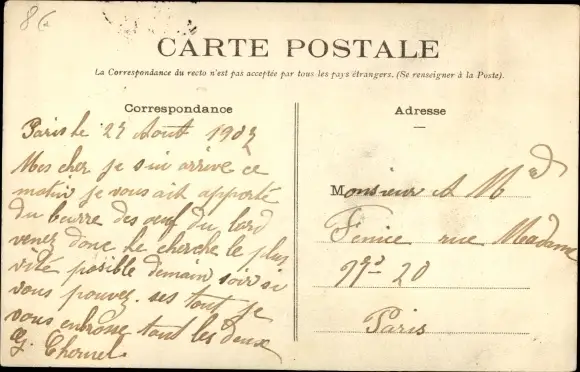 86
CARTE POSTALE
La Correspondance du recto n'est pas acceptée par tous les pays étrangers. (Se renseigner à la Poste).
Correspondance
Paris le 27 Aout 1907
Mes cher je suis arrive ce
matin je vous ait apporté
du beurre des oeuf du lard
venez donc le cherche le plus
vite posible demain soir si
vous pouvez. ses tout je
vous enbrasse tout les deux
Adresse
Monsieur et Md
Fenice rue Madame
20
Paris